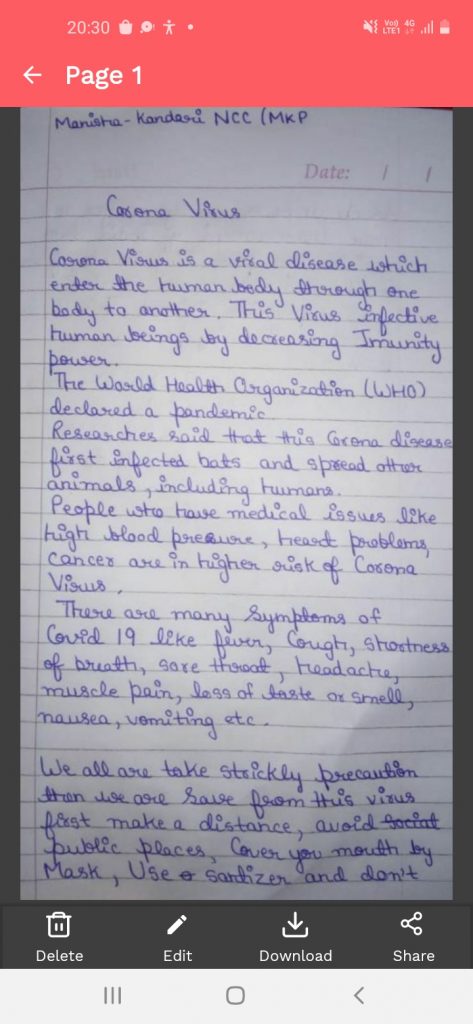 20:30
Vo)) 4G
LTE1
Page 1
Manisha-Kandari NCC (MKP
Date: / /
Corona Virus
Corona Virus is a viral disease which
enter the human body through one
body to another. This Virus infective
human beings by decreasing Imunity
power.
The World Health Organization (WHO)
declared a pandemic
Researches said that this Corona disease
first infected bats and spread other
animals, including humans.
People who have medical issues like
high blood presure, heart problems,
cancer are in higher risk of Corona
Virus.
There are many Symptoms of
Covid 19 like fever, Cough, shortness
of breath, sore throat, headache,
muscle pain, loss of taste or smell,
nausea, vomiting etc.
We all are take strickly precaution
then we are save from this virus
first make a distance, avoid social
public places, Cover you mouth by
Mask, Use sanitizer and don't
Delete
Edit
Download
Share